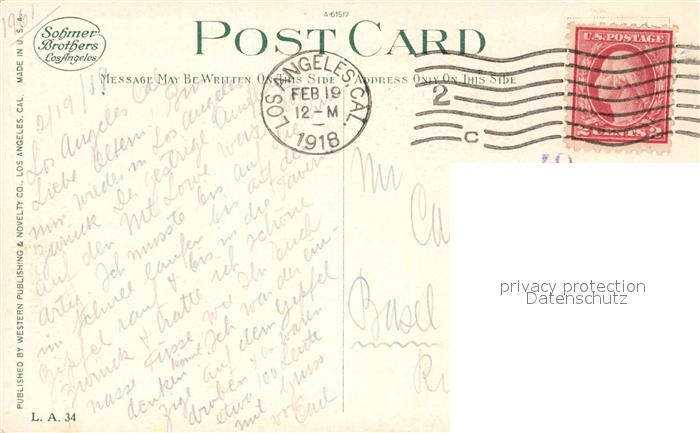 A-61517
Sohmer
Brothers
Los Angeles
POST CARD
MESSAGE MAY BE WRITTEN ON THIS SIDE
ADDRESS ONLY ON THIS SIDE
LOS ANGELES, CAL.
FEB 19
12-M
1918
2
C
U.S. POSTAGE
2 CENTS 2
MADE IN U.S.A.
PUBLISHED BY WESTERN PUBLISHING & NOVELTY CO., LOS ANGELES, CAL.
L. A. 34
2/19/18
Los Angeles Cal
Liebe Eltern! Bin
nun wieder in Los Angeles
zurück. Der gestrige
auf den Mt Lowe war
artig. Ich musste bis auf den
im Schnee laufen bis auf
Gipfel rauf & bis in die Tavern
zurück & hatte ich schöne
nasse Füsse wie Ihr Euch
denken könnt. Ich war der ein-
zige auf dem Gipfel
droben & es waren
etwa 100 Leute
mit Gruss
Carl
Mr
Ca
Basel
privacy protection
Datenschutz